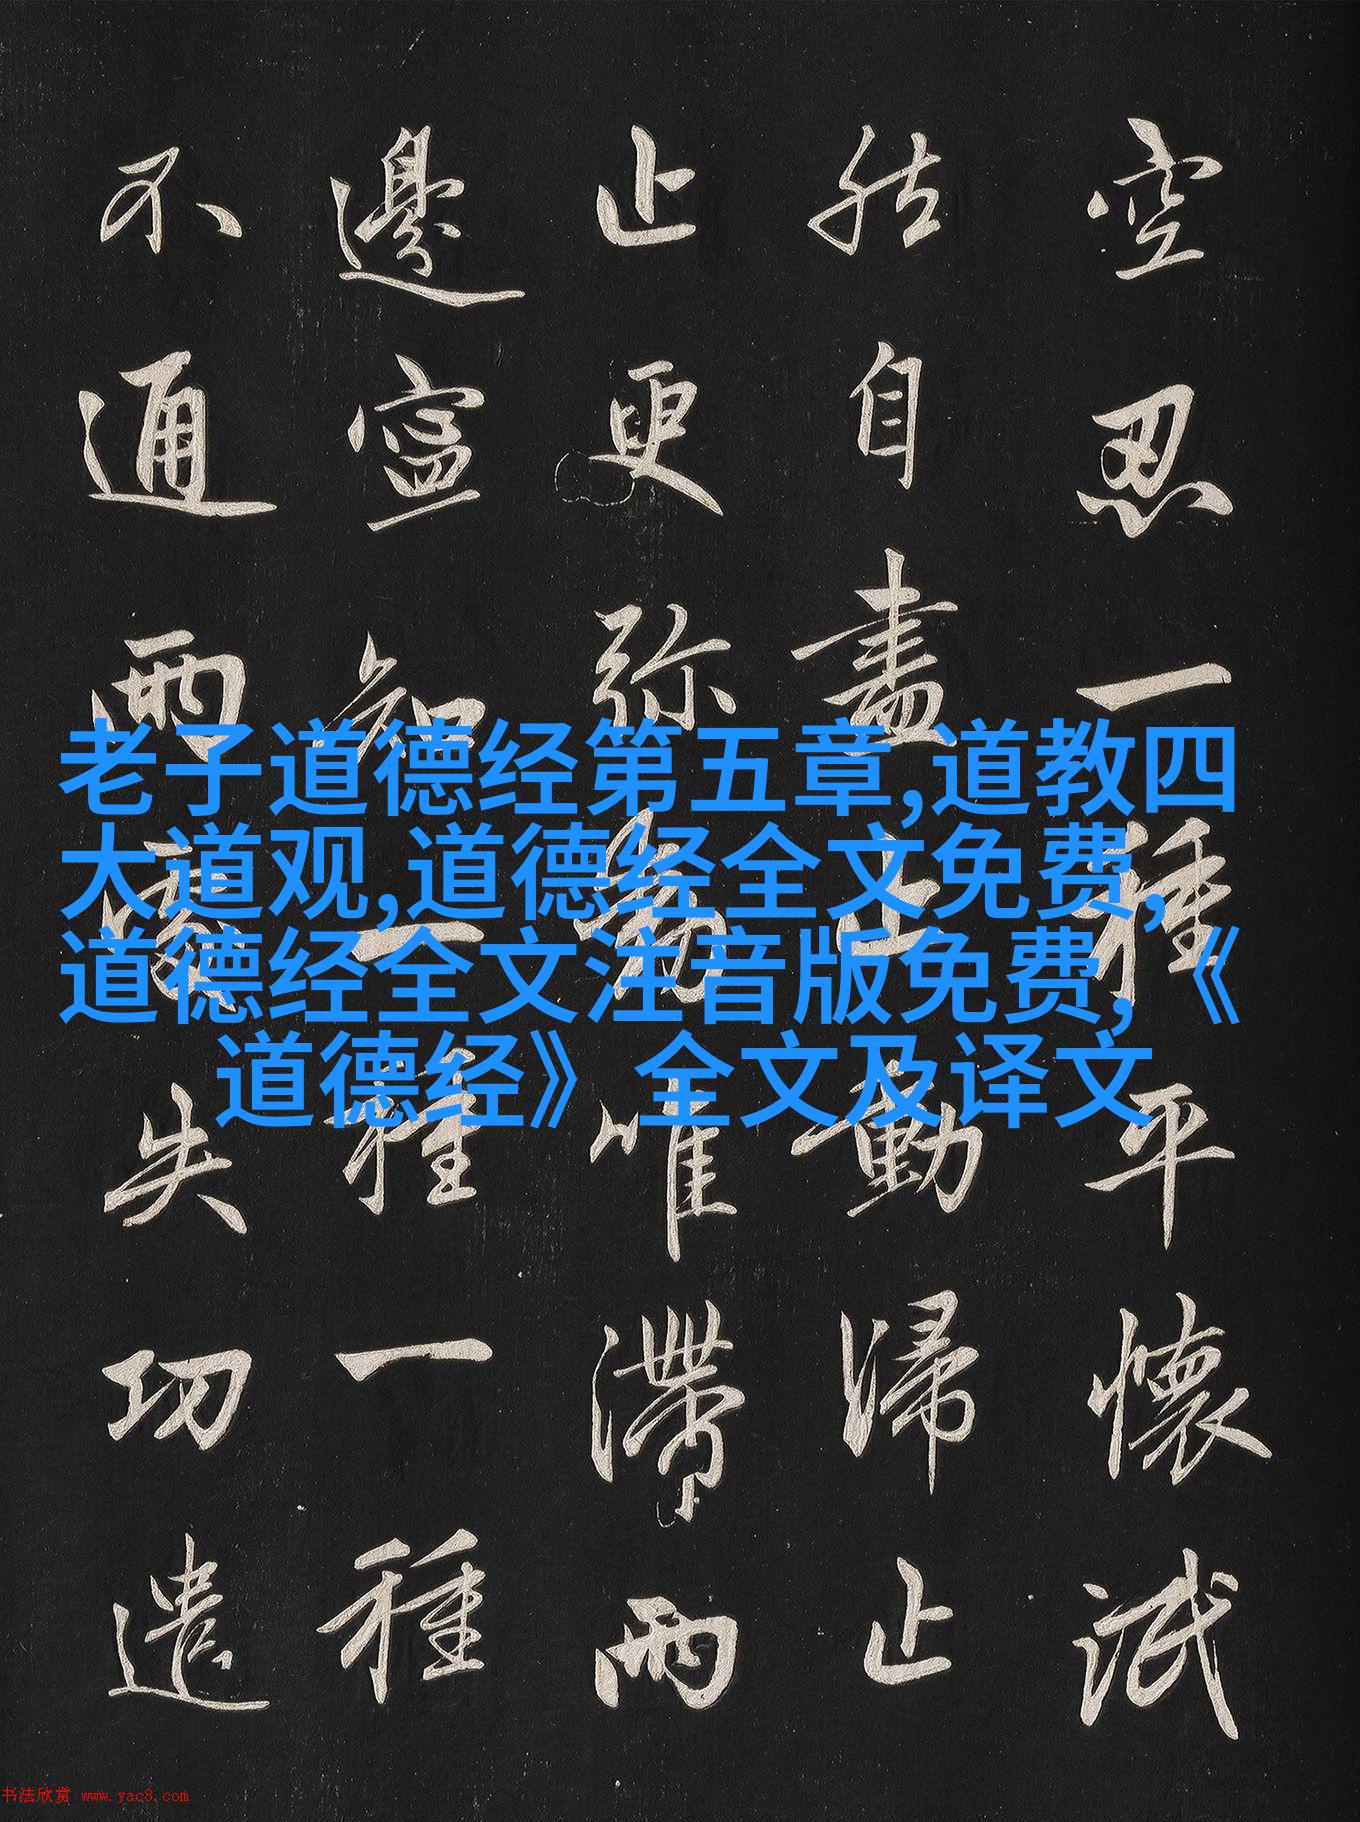 空忍一種平懷泯
然自盡止動歸止
止更弥動唯滯兩
邊寧知一種一種
不通兩處失功遣
老子道德经第五章,道教四
大道观,道德经全文免费,
道德经全文注音版免费,《
道德经》全文及译文
书法欣赏 www.yac8.com